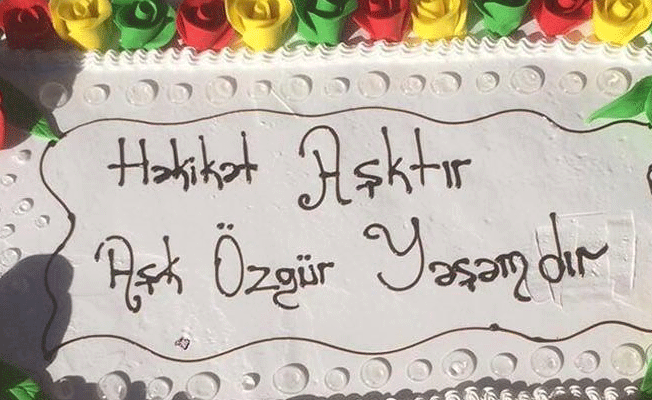 Hakikat Aşktır
Aşk Özgür Yaşamdır